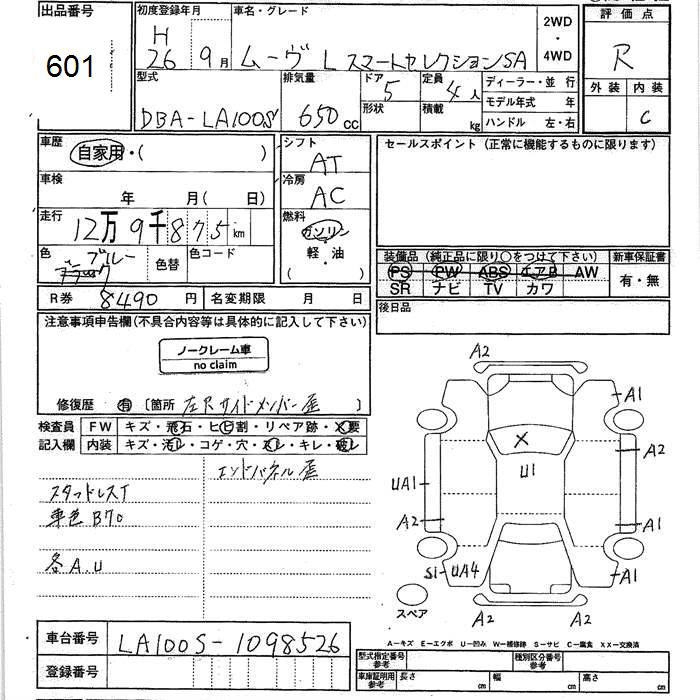 出品番号
601
初度登録年月
H
26 9月
車名・グレード
ムーヴ L スマートセレクションSA
2WD
・
4WD
評価点
R
外装 内装
C
型式
DBA-LA100S
排気量
650 cc
ドア 5
形状
定員 4 人
積載 kg
ディーラー・並行
モデル年式 年
ハンドル 左・右
車歴
自家用・( )
車検
年 月( 日)
走行
12万9千875km
色 ブルー
色替
色コード
R券 8490 円
名変期限 月 日
シフト
AT
冷房
AC
燃料
ガソリン
軽・油
( )
セールスポイント(正常に機能するものに限ります)
装備品(純正品に限り○をつけて下さい)
PS PW ABS エアB AW
SR ナビ TV カワ
新車保証書
有・無
後日品
注意事項申告欄(不具合内容等は具体的に記入して下さい)
ノークレーム車
no claim
修復歴 有 〔箇所 左Rサイドメンバー歪 〕
検査員
記入欄
FW キズ・飛石・ヒビ割・リペア跡・X要
内装 キズ・汚レ・コゲ・穴・スレ・キレ・破レ
エンドパネル歪
スタッドレスT
車色B70
各A.U
A2
A1
A2
X
U1
UA1
A2
A1
S1 UA4
A1
スペア
A2
A2
A-キズ E-エクボ U-凹み W-補修跡 S-サビ C-腐食 XX-交換済
車台番号 LA100S-1098526
登録番号
型式指定番号
参考
種別区分番号
参考
車庫証明用
参考
長さ cm
幅 cm
高さ cm